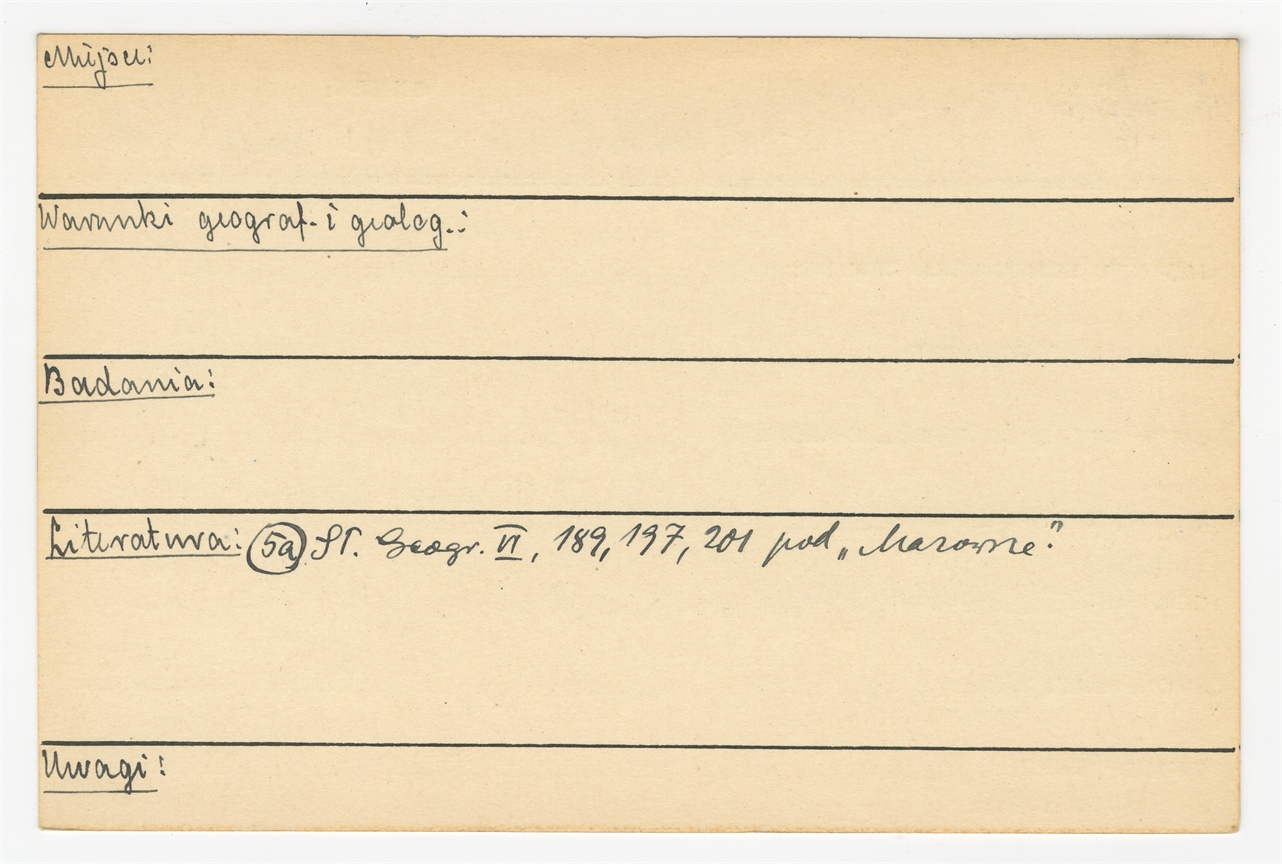 Miejsce:
Warunki geograf. i geolog.:
Badania:
Literatura: 5a Sł. Geogr. VI, 189, 197, 201 pod „Mazowsze”
Uwagi: